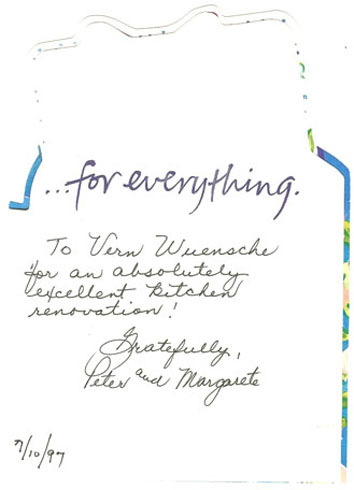 ...for everything.
To Vern Wuensche
for an absolutely
excellent kitchen
renovation!
Gratefully,
Peter and Margarete
7/10/97